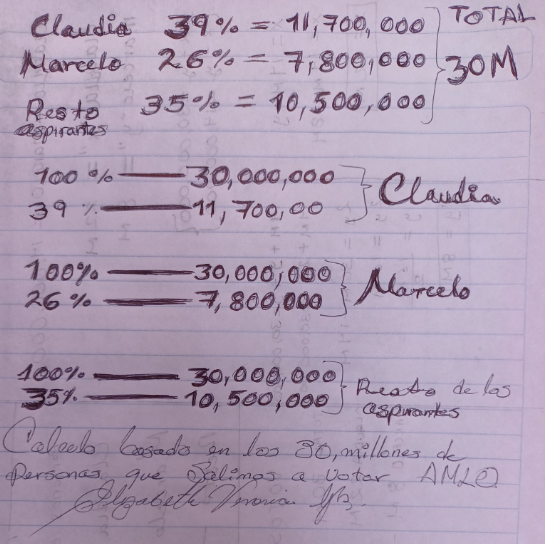 Claudia 39% = 11,700,000
Marcelo 26% = 7,800,000
Resto aspirantes 35% = 10,500,000
TOTAL
30M
100% 30,000,000
39% 11,700,00
Claudia
100% 30,000,000
26% 7,800,000
Marcelo
100% 30,000,000
35% 10,500,000
Resto de los
aspirantes
Calculo basado en los 30, millones de
personas que salimos a votar AMLO
Elizabeth